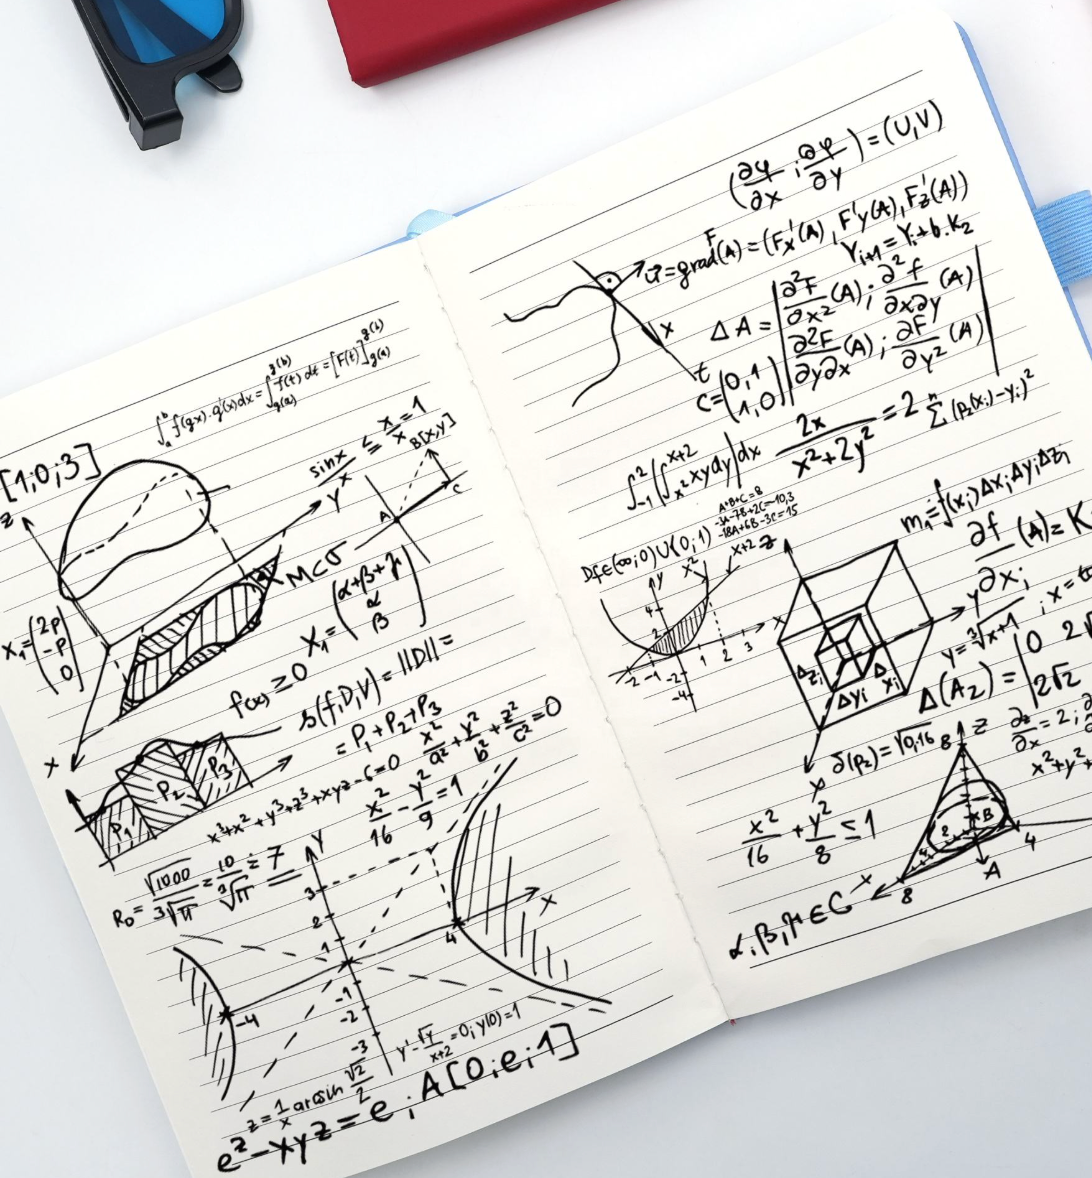 ∫ₐᵇ f(gx).g'(x)dx = ∫_{g(a)}^{g(b)} f(t) dt = [F(t)]_{g(a)}^{g(b)}
[1;0;3]
sinx/x ≤ x/x = 1
B[x,y]
Z
Y
A
C
M⊂σ
X₁ = (2p -p 0)
X₁ = (α+β+γ α β)
f(x) ≥ 0
s(f,D,V) = ||D|| =
= P₁ + P₂ + P₃
X
P₁ P₂ P₃
x³+x² + y³+z³ + xyz - C = 0
x²/a² + y²/b² + z²/c² = 0
x²/16 - y²/9 = 1
R₀ = √1000 / 3√π = 10 / ³√π = 7
Y
3
2
1
X
4
-4
-1
-2
-3
y' - √y / x+2 = 0; y(0) = 1
z = 1/x arcsin √2/2
e^z - xyz = e; A[0;e;1]
(∂φ/∂x ; ∂φ/∂y) = (U,V)
u⃗ = grad F(A) = (F'x(A), F'y(A), F'z(A))
Yᵢ₊₁ = Yᵢ + b.K₂
X
t
ΔA = |∂²F/∂x² (A); ∂²f/∂x∂y (A)
∂²F/∂y∂x (A); ∂F/∂y² (A)|
C = (0,1 1,0)
∫₋₁² (∫_{x²}^{x+2} xy dy) dx
2x / x²+2y² = 2
Σⁿ (p₂(xᵢ)-yᵢ)²
A+B+C=8
-3A-7B+2C=-10,3
-18A+6B-3C=15
Df∈(∞;0)∪(0;1)
m₁ = f(xᵢ)ΔxᵢΔyᵢΔzᵢ
∂f/∂xᵢ (A) = K
Y
X²
X+2
4
2
-2 -1
1 2 3
X
-2
-4
Z
Y
X
Δzᵢ
Δyᵢ
Δxᵢ
y = ³√x+1 ; x =
Δ(A₂) = |0 2√
2√2
δ(p₂) = √0,16
∂z/∂x = 2;
x²+y²+
x²/16 + y²/8 ≤ 1
8
Z
B
2
4
A
X
8
α,β,γ∈C